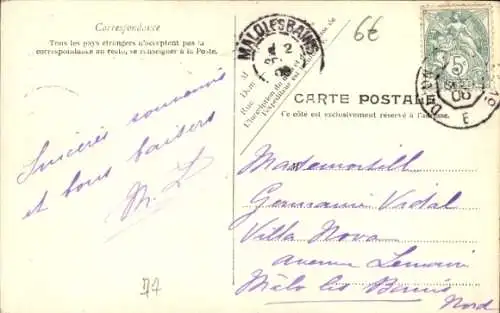 Correspondance
Tous les pays étrangers n'acceptent pas la
correspondance au recto, se renseigner à la Poste.
Sincères souvenirs
et bons baisers
M. L.
77
6€
MALO LES BAINS
2
06
CARTE POSTALE
Ce côté est exclusivement réservé à l'adresse.
5
06
E
Mademoiselle
Germaine Vidal
Villa Nova
Avenue
Malo les Bains
Nord